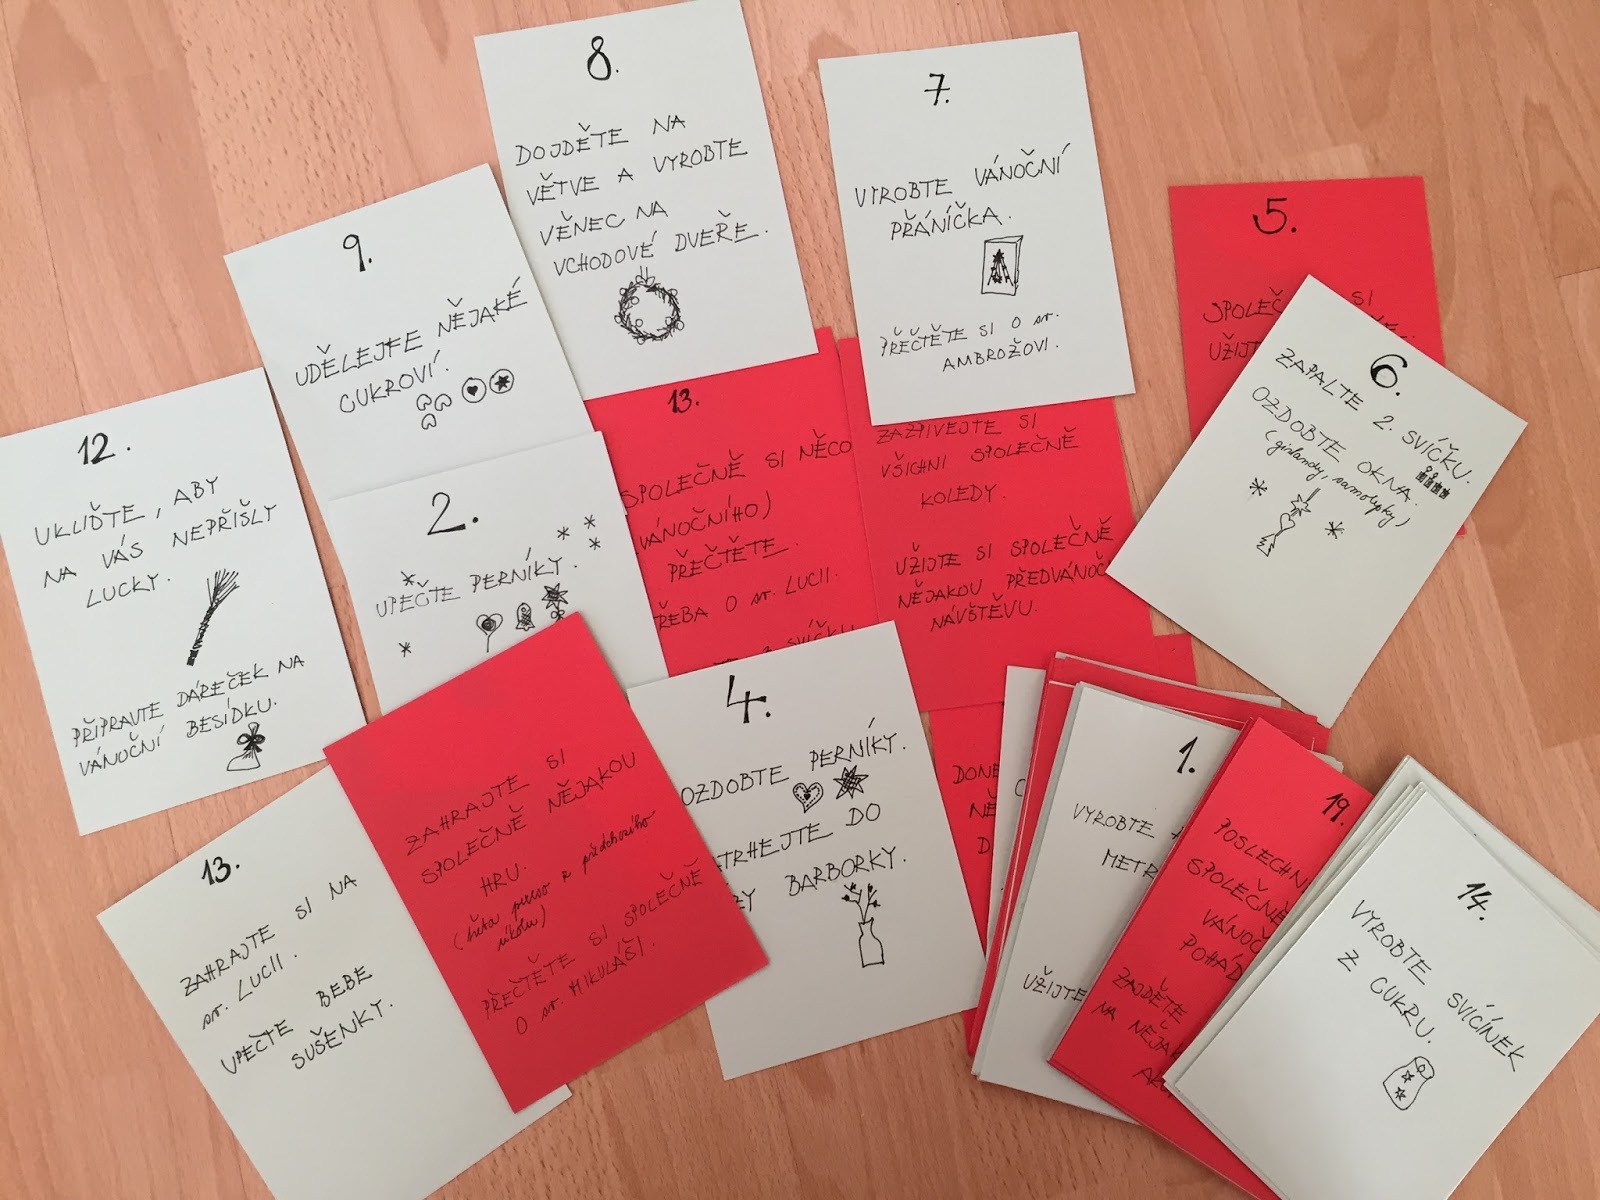 8.
DOJDĚTE NA
VĚTVE A VYROBTE
VĚNEC NA
VCHODOVÉ DVEŘE.
7.
VYROBTE VÁNOČNÍ
PŘÁNÍČKA.
PŘEČTĚTE SI O sv.
AMBROŽOVI.
5.
SPOLEČ SI
UŽIJT
6.
ZAPALTE 2. SVÍČKU.
OZDOBTE OKNA.
(girlandy, samolepky)
9.
UDĚLEJTE NĚJAKÉ
CUKROVÍ.
12.
UKLIĎTE, ABY
NA VÁS NEPŘIŠLY
LUCKY.
PŘIPRAVTE DÁREČEK NA
VÁNOČNÍ BESÍDKU.
2.
UPEČTE PERNÍKY.
13.
SPOLEČNĚ SI NĚCO
VÁNOČNÍHO)
PŘEČTĚTE.
TŘEBA O sv. LUCII.
SVÍČKU
ZAZPÍVEJTE SI
VŠICHNI SPOLEČNĚ
KOLEDY.
UŽIJTE SI SPOLEČNĚ
NĚJAKOU PŘEDVÁNOČ
NÁVŠTĚVU.
13.
ZAHRAJTE SI NA
sv. LUCII.
UPEČTE BEBE
SUŠENKY.
ZAHRAJTE SI
SPOLEČNĚ NĚJAKOU
HRU.
(třeba pexeso z předchozího
úkolu)
PŘEČTĚTE SI SPOLEČNĚ
O sv. MIKULÁŠI.
4.
OZDOBTE PERNÍKY.
TRHEJTE DO
ZY BARBORKY.
DONE
NĚ
D
1.
VYROBTE
METR
UŽIJTE
19.
POSLECHN
SPOLEČNĚ
VÁNOČ
POHÁD
ZAJDĚTE
NA NĚJAK
AK
14.
VYROBTE SVÍCÍNEK
Z CUKRU.